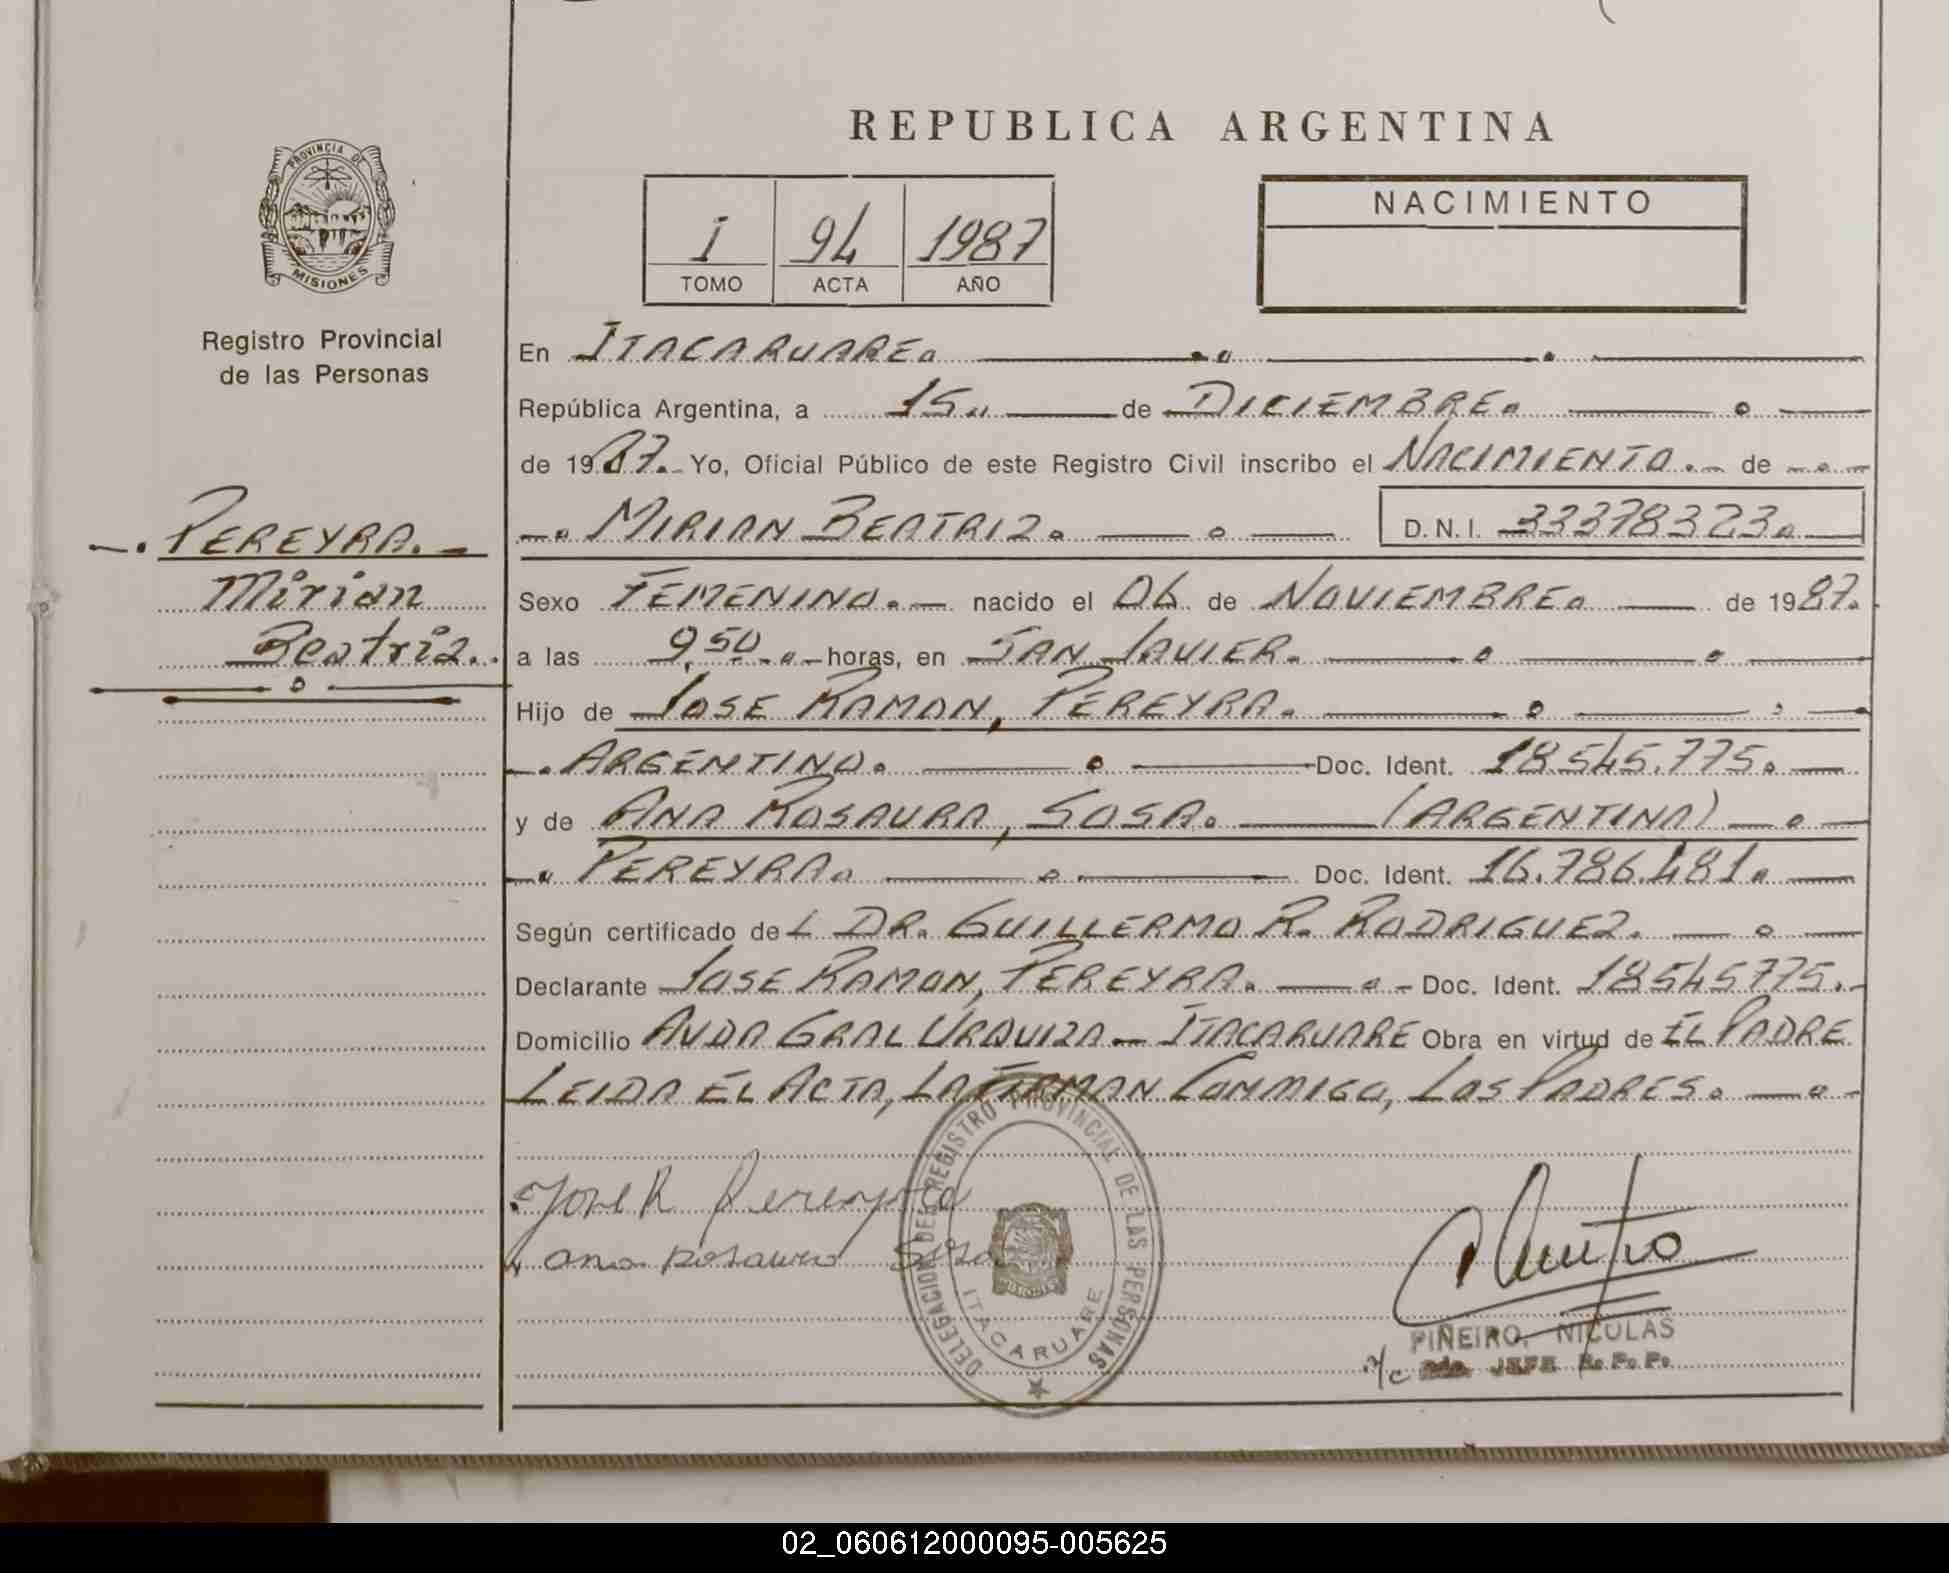 REPUBLICA ARGENTINA
PROVINCIA DE
MISIONES
Registro Provincial
de las Personas
1 94 1987
TOMO ACTA AÑO
NACIMIENTO
En ITACARUARE.
República Argentina, a 15.. de DICIEMBRE.
de 1987. Yo, Oficial Público de este Registro Civil inscribo el NACIMIENTO. de
PEREYRA.
Mirian
Beatriz.
MIRIAN BEATRIZ. D.N.I. 33378323.
Sexo FEMENINO. nacido el 06 de NOVIEMBRE. de 1987.
a las 9,50 horas, en SAN JAVIER.
Hijo de JOSE RAMON, PEREYRA.
ARGENTINO. Doc. Ident. 18.545.775.
y de ANA ROSAURA, SOSA. (ARGENTINA)
PEREYRA. Doc. Ident. 16.786.481.
Según certificado de L DR. GUILLERMO R. RODRIGUEZ.
Declarante JOSE RAMON, PEREYRA. Doc. Ident. 18545775.
Domicilio AVDA GRAL URQUIZA - ITACARUARE Obra en virtud de EL PADRE
LEIDA EL ACTA, LA FIRMAN CONMIGO, LOS PADRES.
Jose R Pereyra
ana Rosaura Sosa
DELEGACION DEL REGISTRO PROVINCIAL DE LAS PERSONAS
ITACARUARE
PIÑEIRO, NICOLAS
a/c 2do. JEFE R. P. P.
02_060612000095-005625